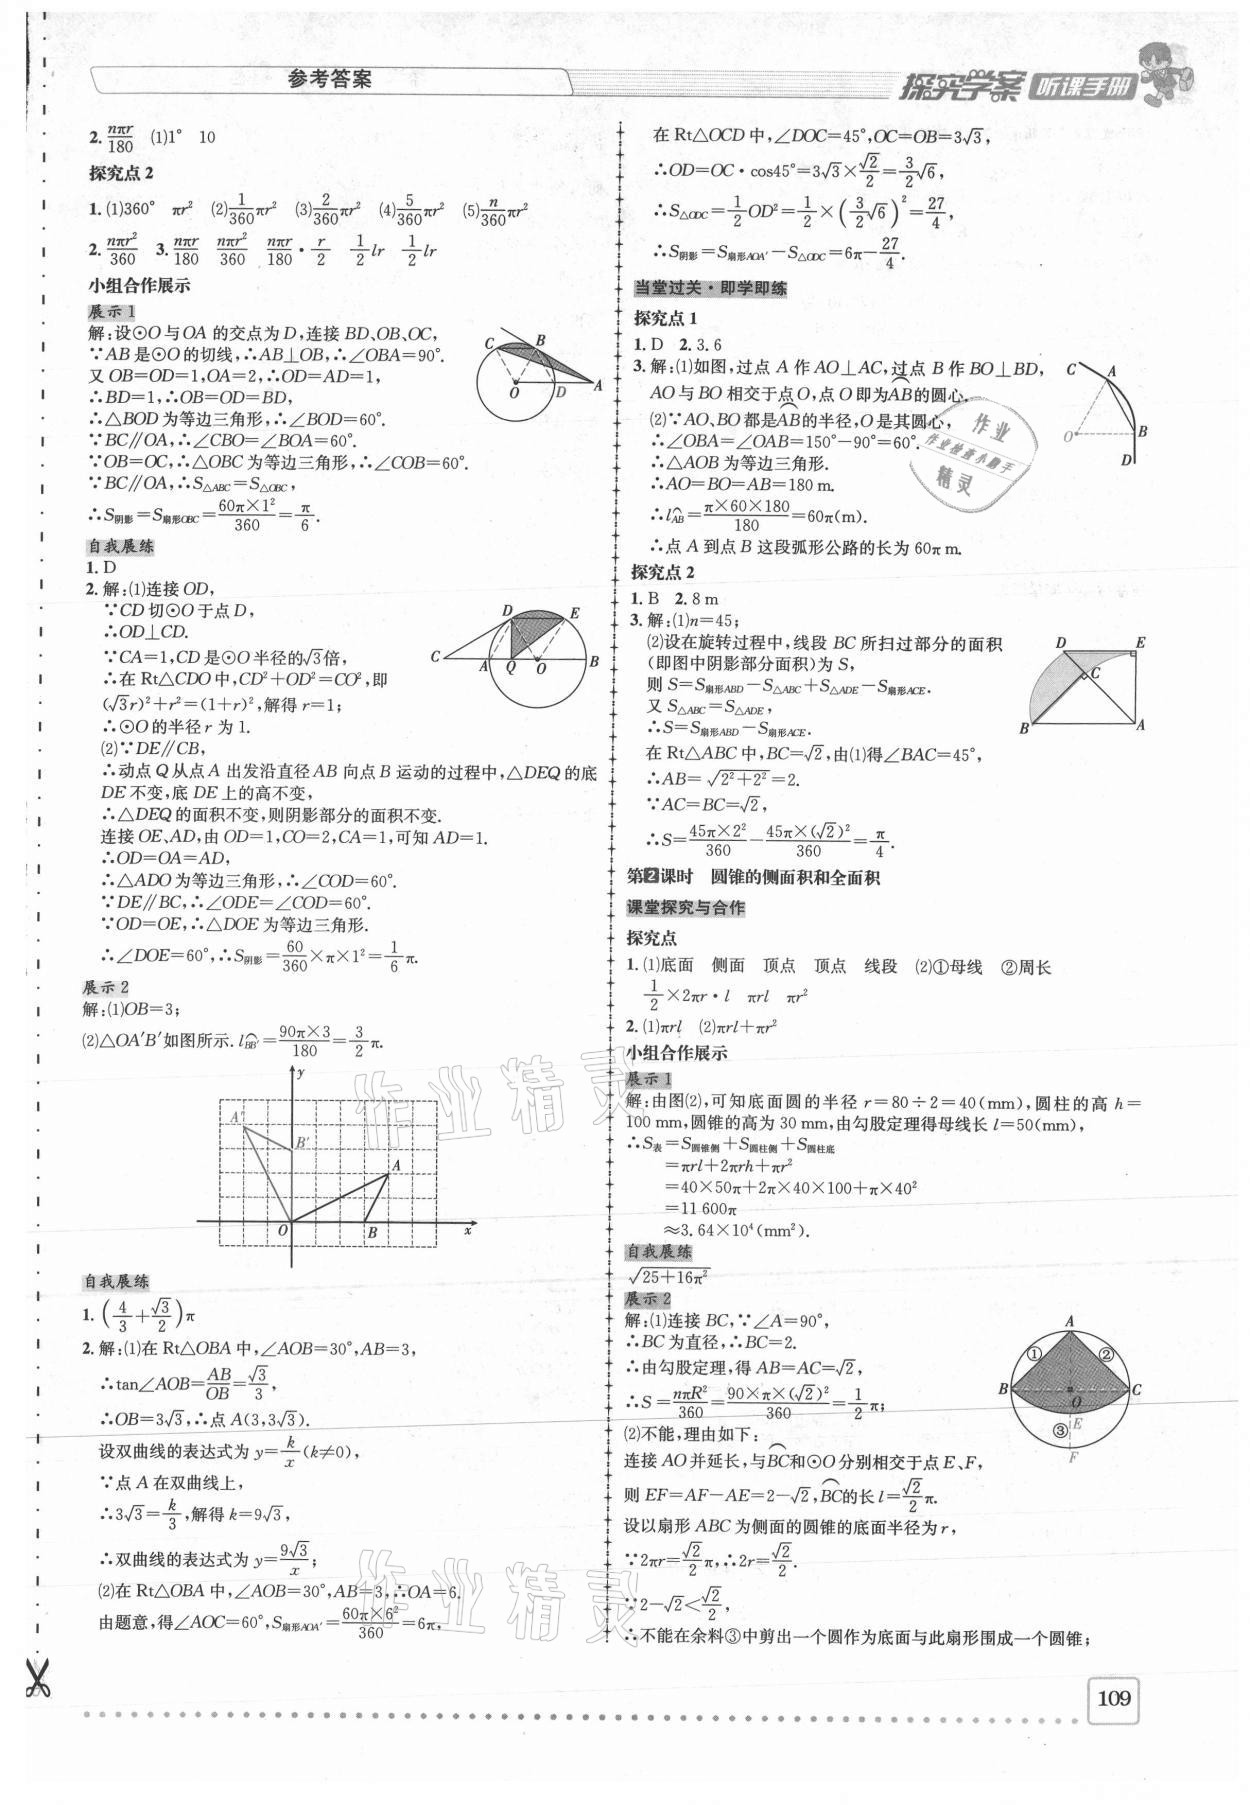 参考答案
探究学案 听课手册
2. nπr/180 (1)1° 10
探究点 2
1. (1)360° πr² (2)1/360 πr² (3)2/360 πr² (4)5/360 πr² (5)n/360 πr²
2. nπr²/360 3. nπr/180 nπr²/360 nπr/180 · r/2 1/2 lr 1/2 lr
小组合作展示
展示 1
解:设⊙O与OA 的交点为D,连接 BD、OB、OC,
∵AB是⊙O的切线,∴AB⊥OB,∴∠OBA=90°.
又OB=OD=1,OA=2,∴OD=AD=1,
∴BD=1,∴OB=OD=BD,
∴△BOD为等边三角形,∴∠BOD=60°.
∵BC∥OA,∴∠CBO=∠BOA=60°.
∵OB=OC,∴△OBC为等边三角形,∴∠COB=60°.
∵BC∥OA,∴S△ABC=S△OBC,
∴S阴影=S扇形OBC=60π×1²/360=π/6.
C B O D A
自我展练
1. D
2. 解:(1)连接OD,
∵CD切⊙O于点D,
∴OD⊥CD.
∵CA=1,CD是⊙O半径的√3倍,
∴在Rt△CDO中,CD²+OD²=CO²,即
(√3r)²+r²=(1+r)²,解得r=1;
∴⊙O的半径r为1.
(2)∵DE∥CB,
∴动点Q从点A出发沿直径AB向点B运动的过程中,△DEQ的底
DE不变,底DE上的高不变,
∴△DEQ的面积不变,则阴影部分的面积不变.
连接OE、AD,由OD=1,CO=2,CA=1,可知AD=1.
∴OD=OA=AD,
∴△ADO为等边三角形,∴∠COD=60°.
∵DE∥BC,∴∠ODE=∠COD=60°.
∵OD=OE,∴△DOE为等边三角形.
∴∠DOE=60°,∴S阴影=60/360×π×1²=1/6 π.
D E C A Q O B
展示 2
解:(1)OB=3;
(2)△OA′B′如图所示. l⌒BB′=90π×3/180=3/2 π.
y A′ B′ A O B x
自我展练
1. (4/3+√3/2)π
2. 解:(1)在Rt△OBA中,∠AOB=30°,AB=3,
∴tan∠AOB=AB/OB=√3/3,
∴OB=3√3,∴点A(3,3√3).
设双曲线的表达式为y=k/x(k≠0),
∵点A在双曲线上,
∴3√3=k/3,解得k=9√3,
∴双曲线的表达式为y=9√3/x;
(2)在Rt△OBA中,∠AOB=30°,AB=3,∴OA=6.
由题意,得∠AOC=60°,S扇形AOA′=60π×6²/360=6π,
在Rt△OCD中,∠DOC=45°,OC=OB=3√3,
∴OD=OC·cos45°=3√3×√2/2=3/2√6,
∴S△ODC=1/2 OD²=1/2×(3/2√6)²=27/4,
∴S阴影=S扇形AOA′−S△ODC=6π−27/4.
当堂过关·即学即练
探究点 1
1. D 2. 3.6
3. 解:(1)如图,过点A作AO⊥AC,过点B作BO⊥BD,
AO与BO相交于点O,点O即为⌒AB的圆心.
(2)∵AO、BO都是⌒AB的半径,O是其圆心,
∴∠OBA=∠OAB=150°−90°=60°.
∴△AOB为等边三角形.
∴AO=BO=AB=180 m.
∴l⌒AB=π×60×180/180=60π(m).
∴点A到点B这段弧形公路的长为60π m.
C A O B D
作业
作业检查小助手
精灵
探究点 2
1. B 2. 8 m
3. 解:(1)n=45;
(2)设在旋转过程中,线段BC所扫过部分的面积
(即图中阴影部分面积)为S,
则S=S扇形ABD−S△ABC+S△ADE−S扇形ACE.
又S△ABC=S△ADE,
∴S=S扇形ABD−S扇形ACE.
在Rt△ABC中,BC=√2,由(1)得∠BAC=45°,
∴AB=√(2²+2²)=2.
∵AC=BC=√2,
∴S=45π×2²/360−45π×(√2)²/360=π/4.
D E C B A
第2课时 圆锥的侧面积和全面积
课堂探究与合作
探究点
1. (1)底面 侧面 顶点 顶点 线段 (2)①母线 ②周长
1/2×2πr·l πrl πr²
2. (1)πrl (2)πrl+πr²
小组合作展示
展示 1
解:由图(2),可知底面圆的半径r=80÷2=40(mm),圆柱的高h=
100 mm,圆锥的高为30 mm,由勾股定理得母线长l=50(mm),
∴S表=S圆锥侧+S圆柱侧+S圆柱底
=πrl+2πrh+πr²
=40×50π+2π×40×100+π×40²
=11 600π
≈3.64×10⁴(mm²).
自我展练
√(25+16π²)
展示 2
解:(1)连接BC,∵∠A=90°,
∴BC为直径,∴BC=2.
∴由勾股定理,得AB=AC=√2,
∴S=nπR²/360=90×π×(√2)²/360=1/2 π;
(2)不能,理由如下:
连接AO并延长,与⌒BC和⊙O分别相交于点E、F,
则EF=AF−AE=2−√2,⌒BC的长l=√2/2 π.
设以扇形ABC为侧面的圆锥的底面半径为r,
∵2πr=√2/2 π,∴2r=√2/2.
∵2−√2<√2/2,
∴不能在余料③中剪出一个圆作为底面与此扇形围成一个圆锥;
A ① ② B O C E ③ F
作业精灵
作业精灵
109